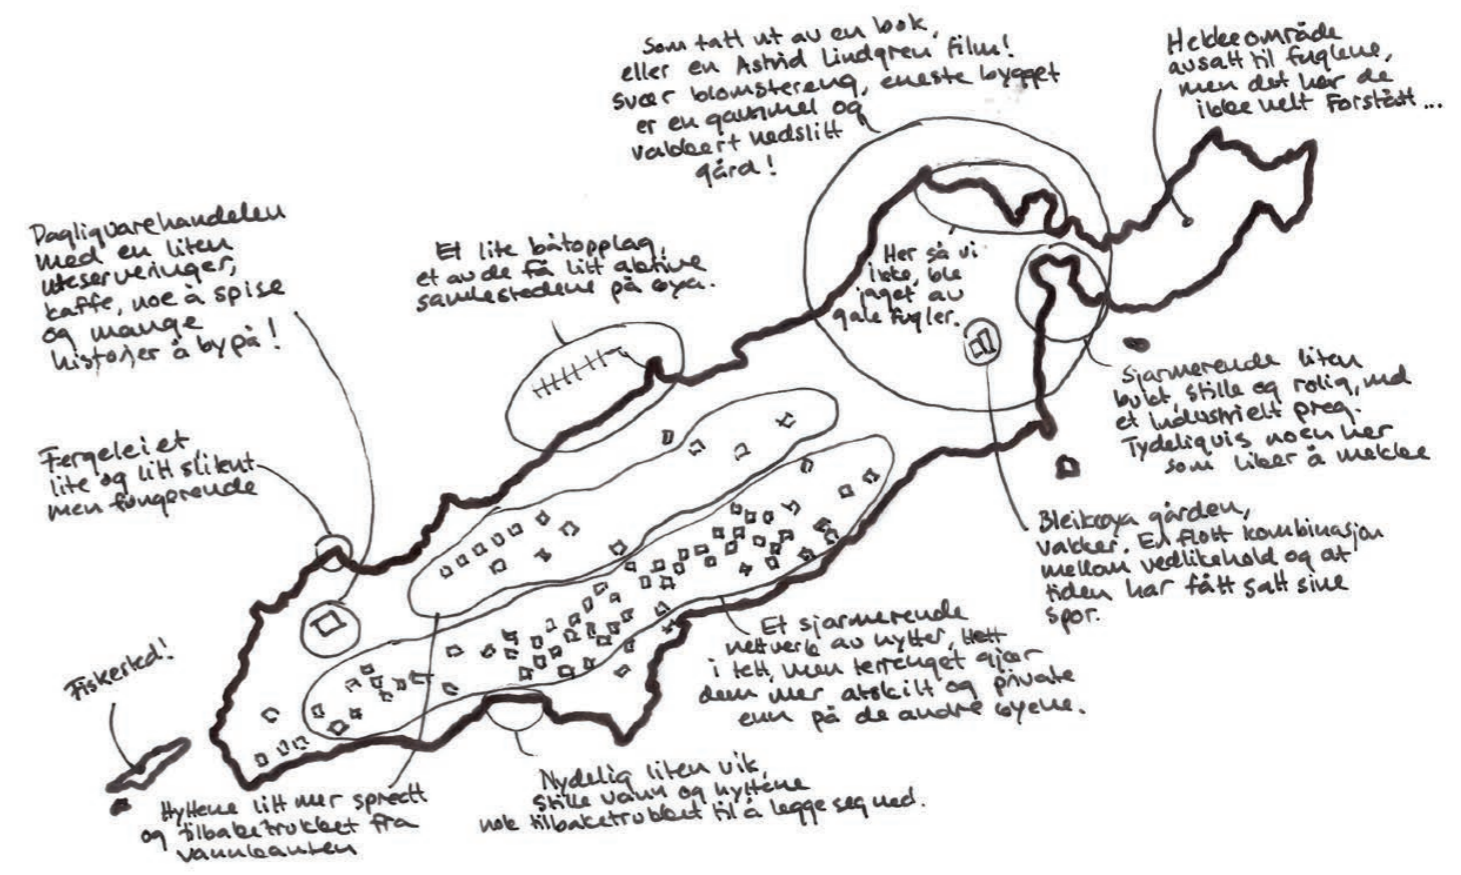 Som tatt ut av en bok,
eller en Astrid Lindgren film!
svær blomstereng, eneste bygget
er en gammel og
vakkert nedslitt
gård!
Hekkeområde
avsatt til fuglene,
men det har de
ikke helt forstått ...
Dagligvarehandelen
med en liten
uteserveringer,
kaffe, noe å spise
og mange
historier å by på!
Et lite båtopplag,
et av de få litt aktive
samlestedene på øya.
Her så vi
ikke, ble
jaget av
gale fugler.
Sjarmerende liten
bukt, stille og rolig, med
et industrielt preg.
Tydeligvis noen her
som liker å mekke
Fergeleiet,
lite og litt slitent
men fungerende
Bleikøya gården,
vakker. En flott kombinasjon
mellom vedlikehold og at
tiden har fått satt sine
spor.
Et sjarmerende
nettverk av hytter, tett
i tett, men terrenget gjør
dem mer atskilt og private
enn på de andre øyene.
Fiskested!
Nydelig liten vik,
stille vann og hyttene
nok tilbaketrukket til å legge seg ned.
Hyttene litt mer spredt
og tilbaketrukket fra
vannkanten